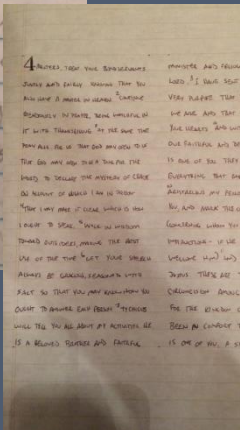 4 Masters, treat your bondservants
justly and fairly knowing that you
also have a master in heaven. 2 Continue
steadfastly in prayer, being watchful in
it with thanksgiving. At the same time
pray also for us that God may open to us
the
words to declare the mystery of Christ
on account of which I am in prison
4 that I may make it clear which is how
I ought to speak. 5 Walk in wisdom
toward outsiders, making the best
use of the time. 6 Let your speech
always be gracious, seasoned with
salt so that you may know how you
ought to answer each person. 7 Tychicus
will tell you all about my activities. He
is a beloved brother and faithful
minister and fellow
Lord. 8 I have sent
very purpose that
we are and that
your hearts and
our faithful and be
is one of you. They
everything that
you, and Mark the
concerning whom you
instructions - if he
welcome him) and
Jesus These are
circumcision among
for the kingdom
been a comfort
is one of you, a